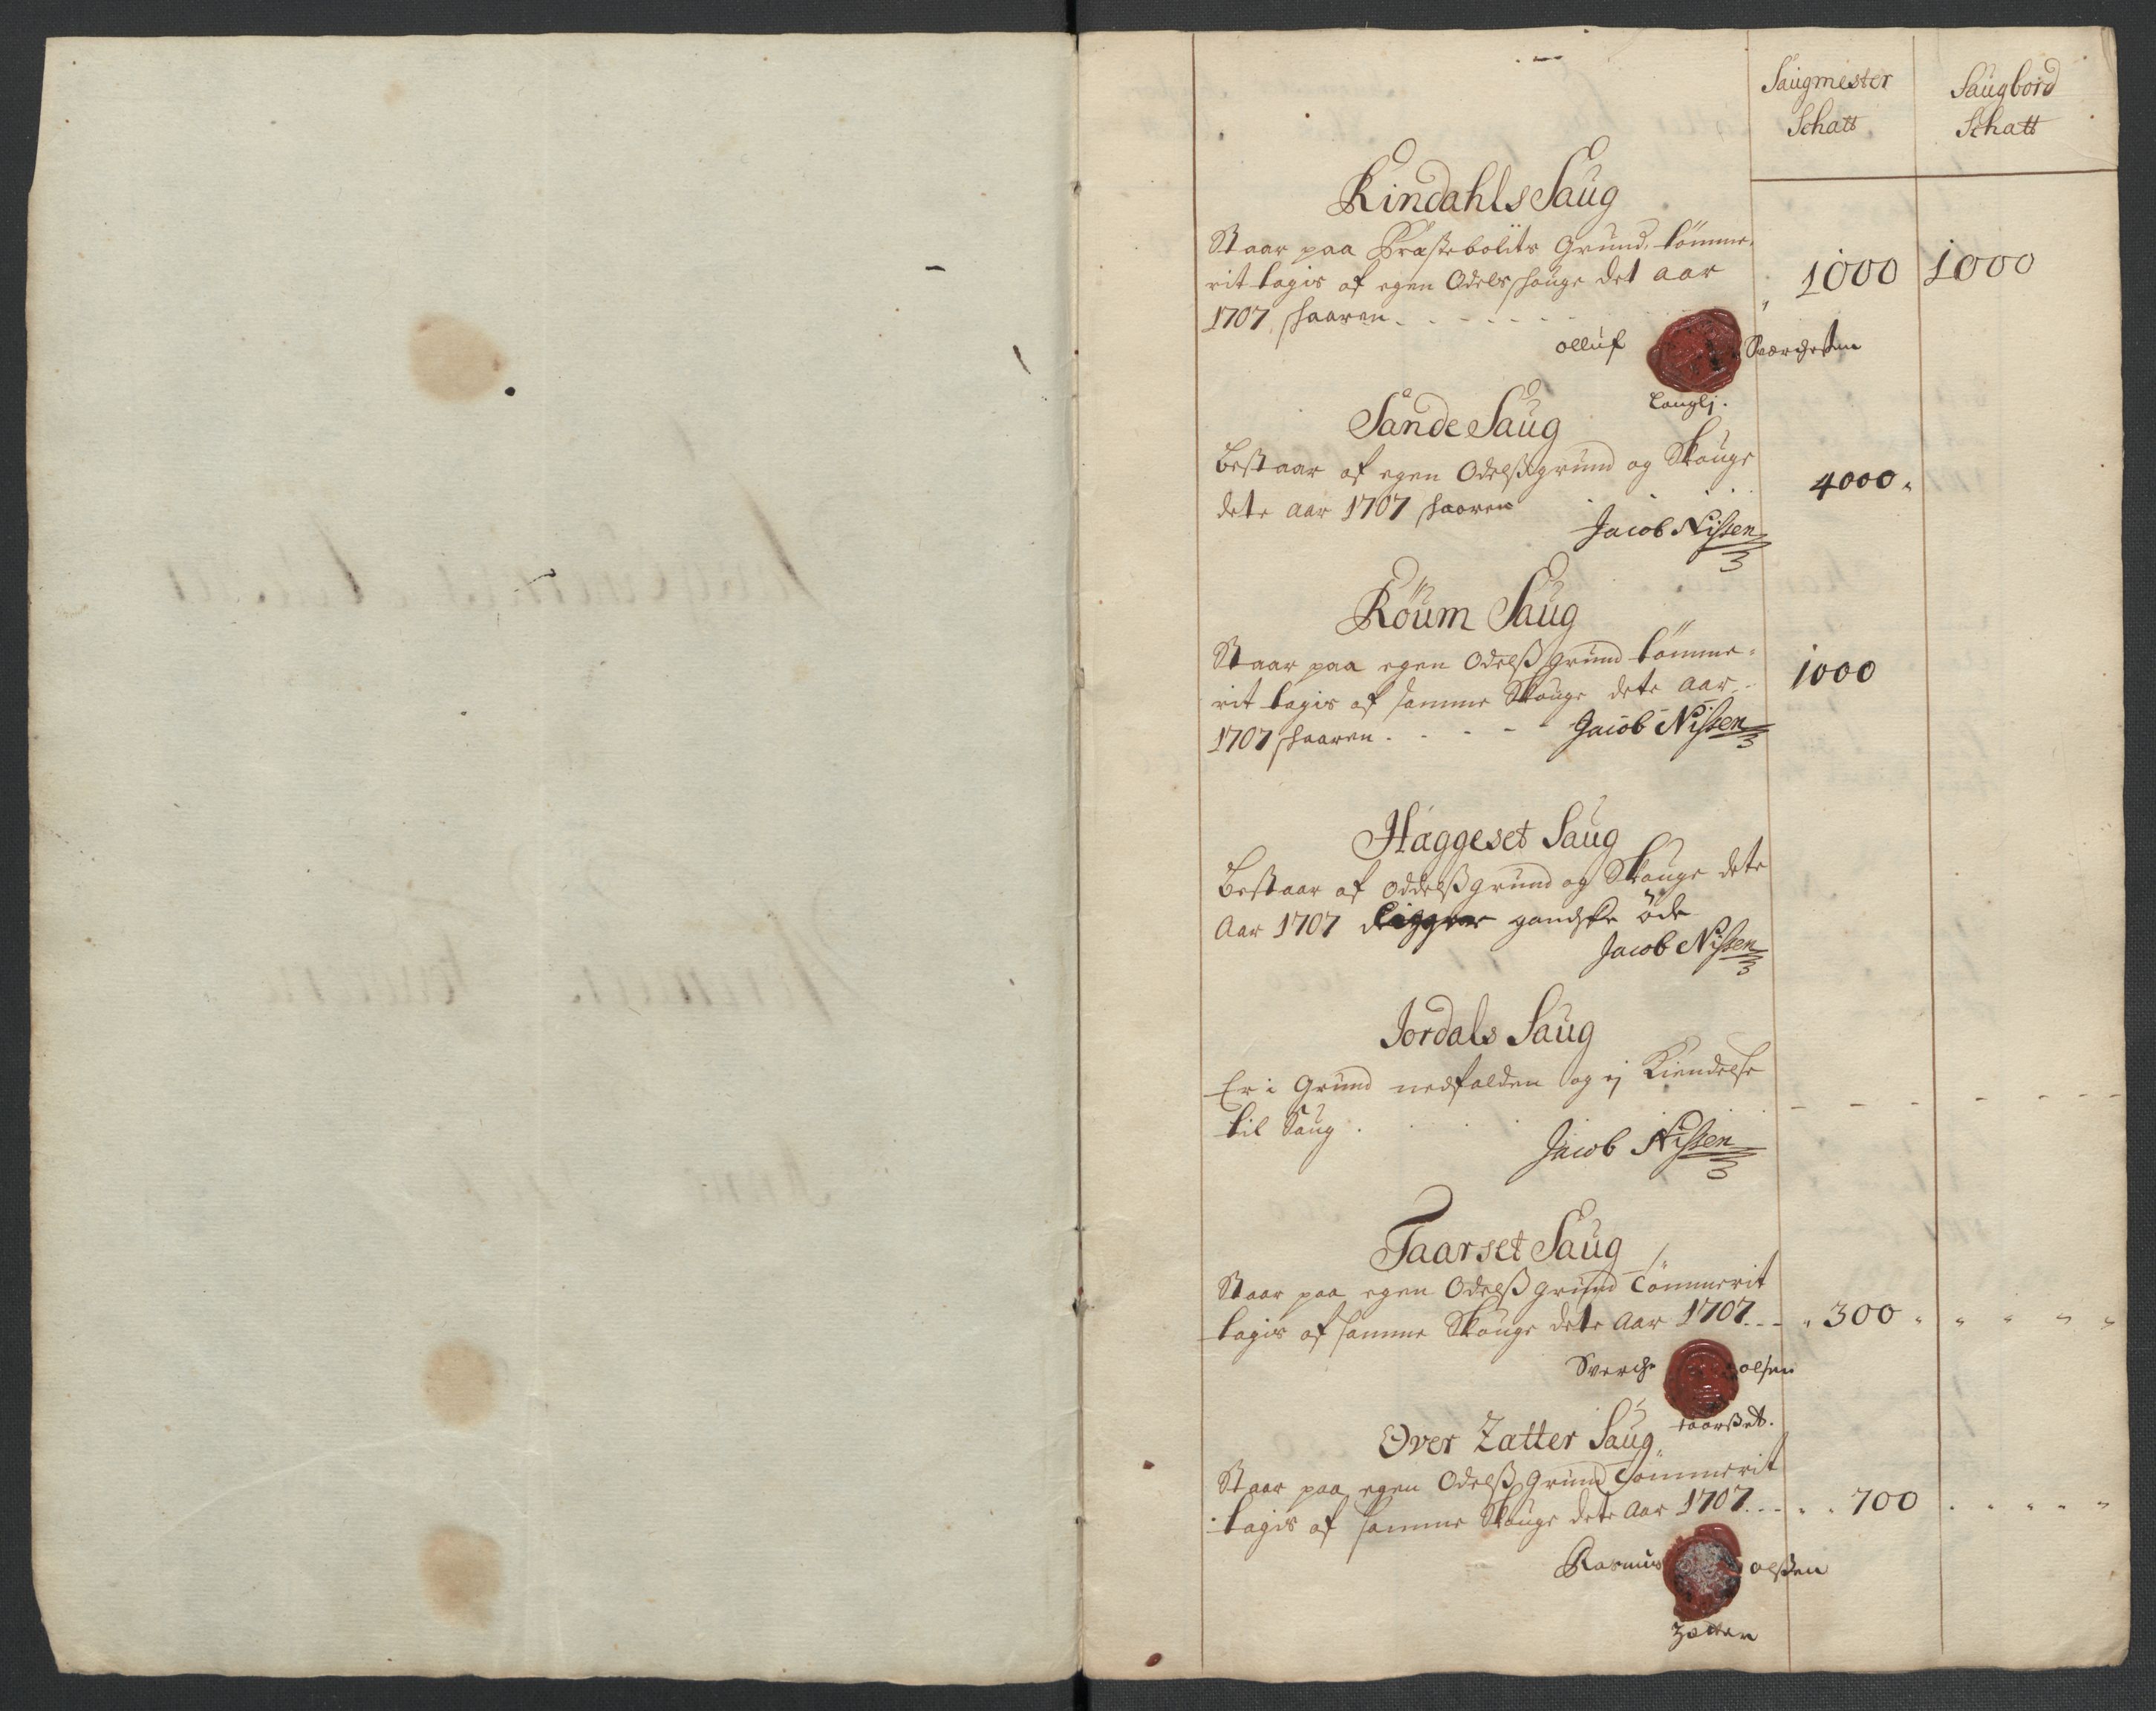 Saugmester
Schatt
Saugbord
Schatt
Rindahls Saug
Staar paa Præstebolits Grund, tömme,
rit tagis af egen Odels skouge det aar
1707 skaaren
1000
1000
olluf
Langlj.
Sande Saug
Bestaar af egen Odelss grund og Skouge
dete aar 1707 skaaren
4000
Jacob Nissen
Röum Saug
Staar paa egen Odelss grund tömme-
rit tagis af samme Skouge dete aar
1707 skaaren
1000
Jacob Nissen
Hæggeset Saug
Bestaar af oddelss grund og Skouge dete
Aar 1707 ligger gandske öde
Jacob Nissen
Jordals Saug
Er i Grund nedfalden og ej Kiendelse
til Saug
Jacob Nissen
Taarset Saug
Staar paa egen Odelss grund Tömmerit
tagis af samme Skouge dete Aar 1707
300
Sverche olsen
taarset.
Over Zatter Saug
Staar paa egen Odelss Grund Tömmerit
tagis af samme Skouge dete Aar 1707
700
Rasmus olsen
Zætter